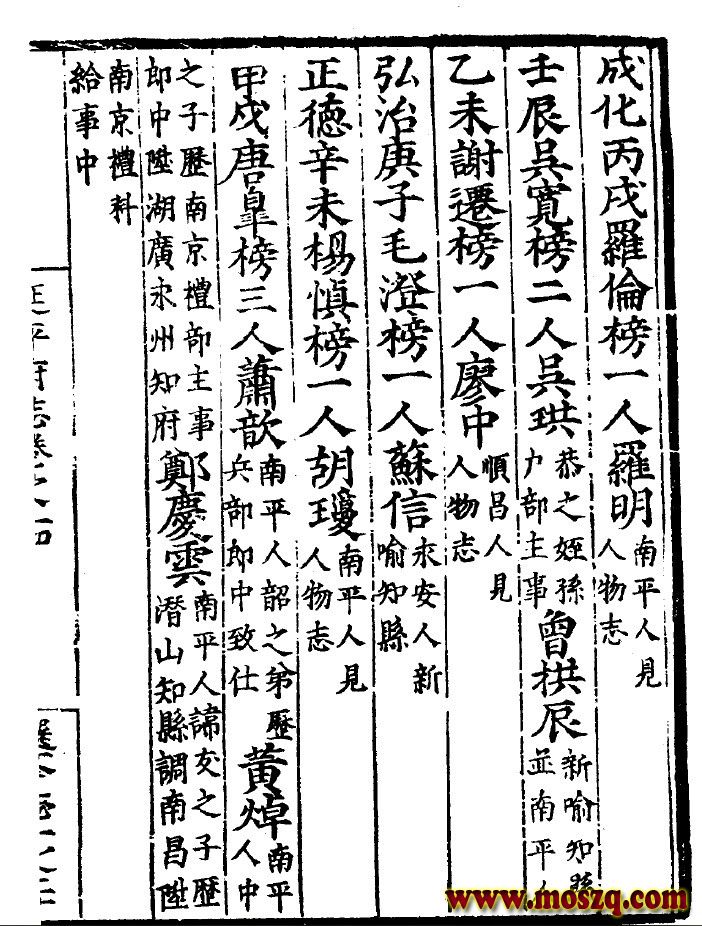 成化丙戌羅倫榜一人羅明南平人見人物志
壬辰吳寬榜二人吳珙恭之姪孫戶部主事曾栱辰新喻知縣並南平人
乙未謝遷榜一人廖中順昌人見人物志
弘治庚子毛澄榜一人蘇信永安人新喻知縣
正德辛未楊慎榜一人胡瓊南平人見人物志
甲戌唐皐榜三人蕭歆南平人韶之弟歷兵部郎中致仕黃焯南平人中
之子歷南京禮部主事郎中陞湖廣永州知府鄭慶雲南平人諱友之子歷潛山知縣調南昌陞
南京禮科給事中
www.moszq.com